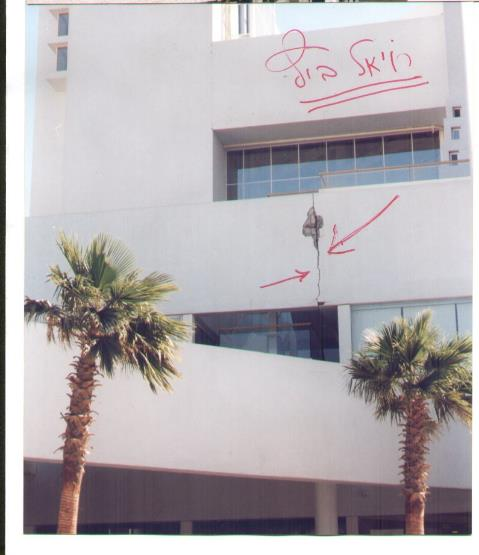 רויאל ביץ'